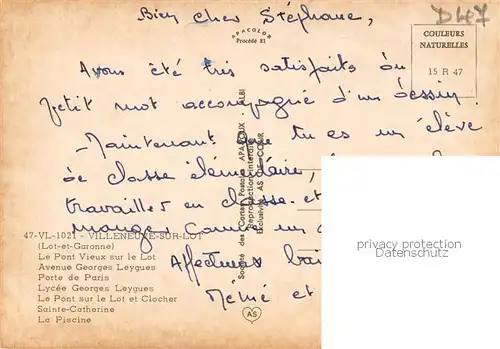 Bien cher Stéphane,
D 47
APACOLOR
Procédé 81
COULEURS
NATURELLES
15 R 47
Avons été très satisfaits du
petit mot accompagné d'un dessin.
- Maintenant que tu es un élève
de classe élémentaire,
travailler en classe et
manger comme un
47-VL-1021 - VILLENEUVE-SUR-LOT
(Lot-et-Garonne)
Le Pont Vieux sur le Lot
Avenue Georges Leygues
Porte de Paris
Lycée Georges Leygues
Le Pont sur le Lot et Clocher
Sainte-Catherine
La Piscine
Affectueux
Mémé et
Société des Cartes Postales APA-POUX - ALBI
Reproduction interdite
AS
privacy protection
Datenschutz